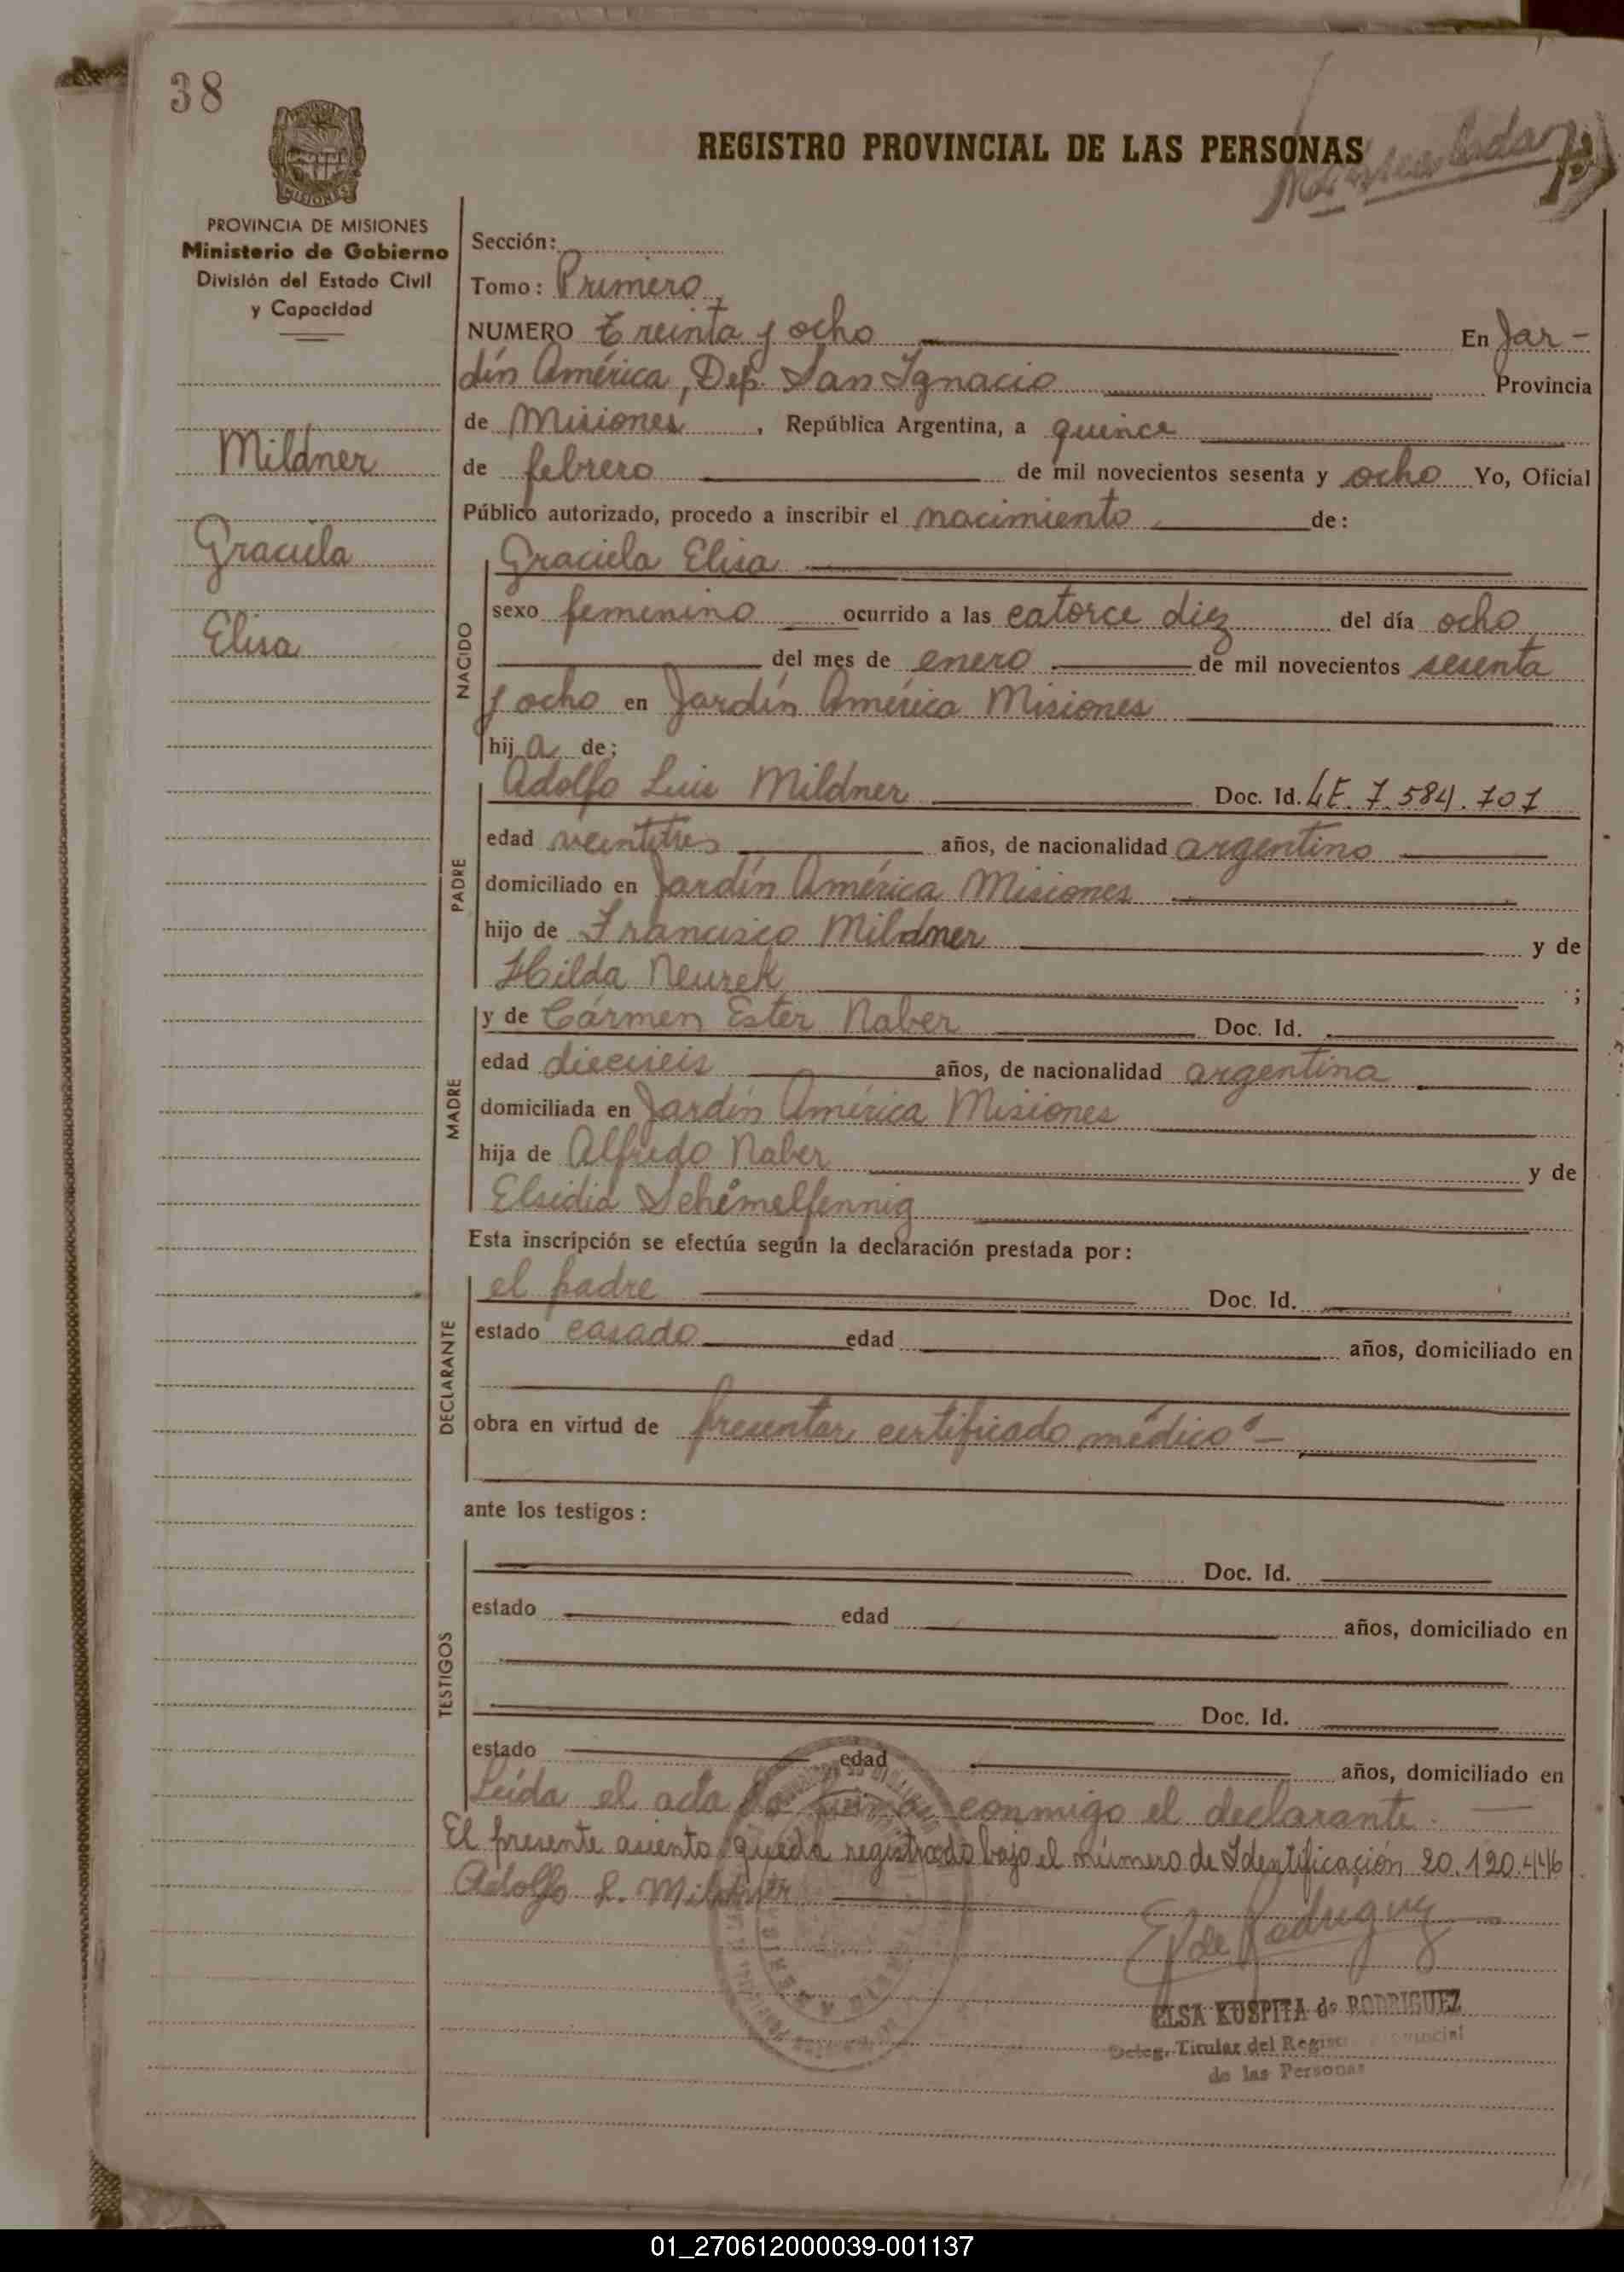 38
REGISTRO PROVINCIAL DE LAS PERSONAS
MISIONES
PROVINCIA DE MISIONES
Ministerio de Gobierno
División del Estado Civil
y Capacidad
Mildner
Graciela
Elisa
Sección:
Tomo: Primero
NUMERO Treinta y ocho En Jar-
dín América, Dep. San Ignacio Provincia
de Misiones, República Argentina, a quince
de febrero de mil novecientos sesenta y ocho Yo, Oficial
Público autorizado, procedo a inscribir el nacimiento de:
NACIDO
Graciela Elisa
sexo femenino ocurrido a las catorce diez del día ocho
del mes de enero de mil novecientos sesenta
y ocho en Jardín América Misiones
hija de;
PADRE
Adolfo Luis Mildner Doc. Id. LE. 7.584.707
edad veintitres años, de nacionalidad argentino
domiciliado en Jardín América Misiones
hijo de Francisco Mildner y de
Hilda Neurek ;
MADRE
y de Cármen Ester Naber Doc. Id.
edad dieciseis años, de nacionalidad argentina
domiciliada en Jardín América Misiones
hija de Alfredo Naber y de
Elsidia Schimelfennig
Esta inscripción se efectúa según la declaración prestada por:
DECLARANTE
el padre Doc. Id.
estado casado edad años, domiciliado en
obra en virtud de presentar certificado médico -
ante los testigos:
TESTIGOS
Doc. Id.
estado edad años, domiciliado en
Doc. Id.
estado edad años, domiciliado en
Leída el acta la firma conmigo el declarante.
El presente asiento queda registrado bajo el número de Identificación 20.120.446
Adolfo L. Mildner
E K de Rodriguez
ELSA KUSPITA de RODRIGUEZ
Deleg. Titular del Registro Provincial
de las Personas
01_270612000039-001137